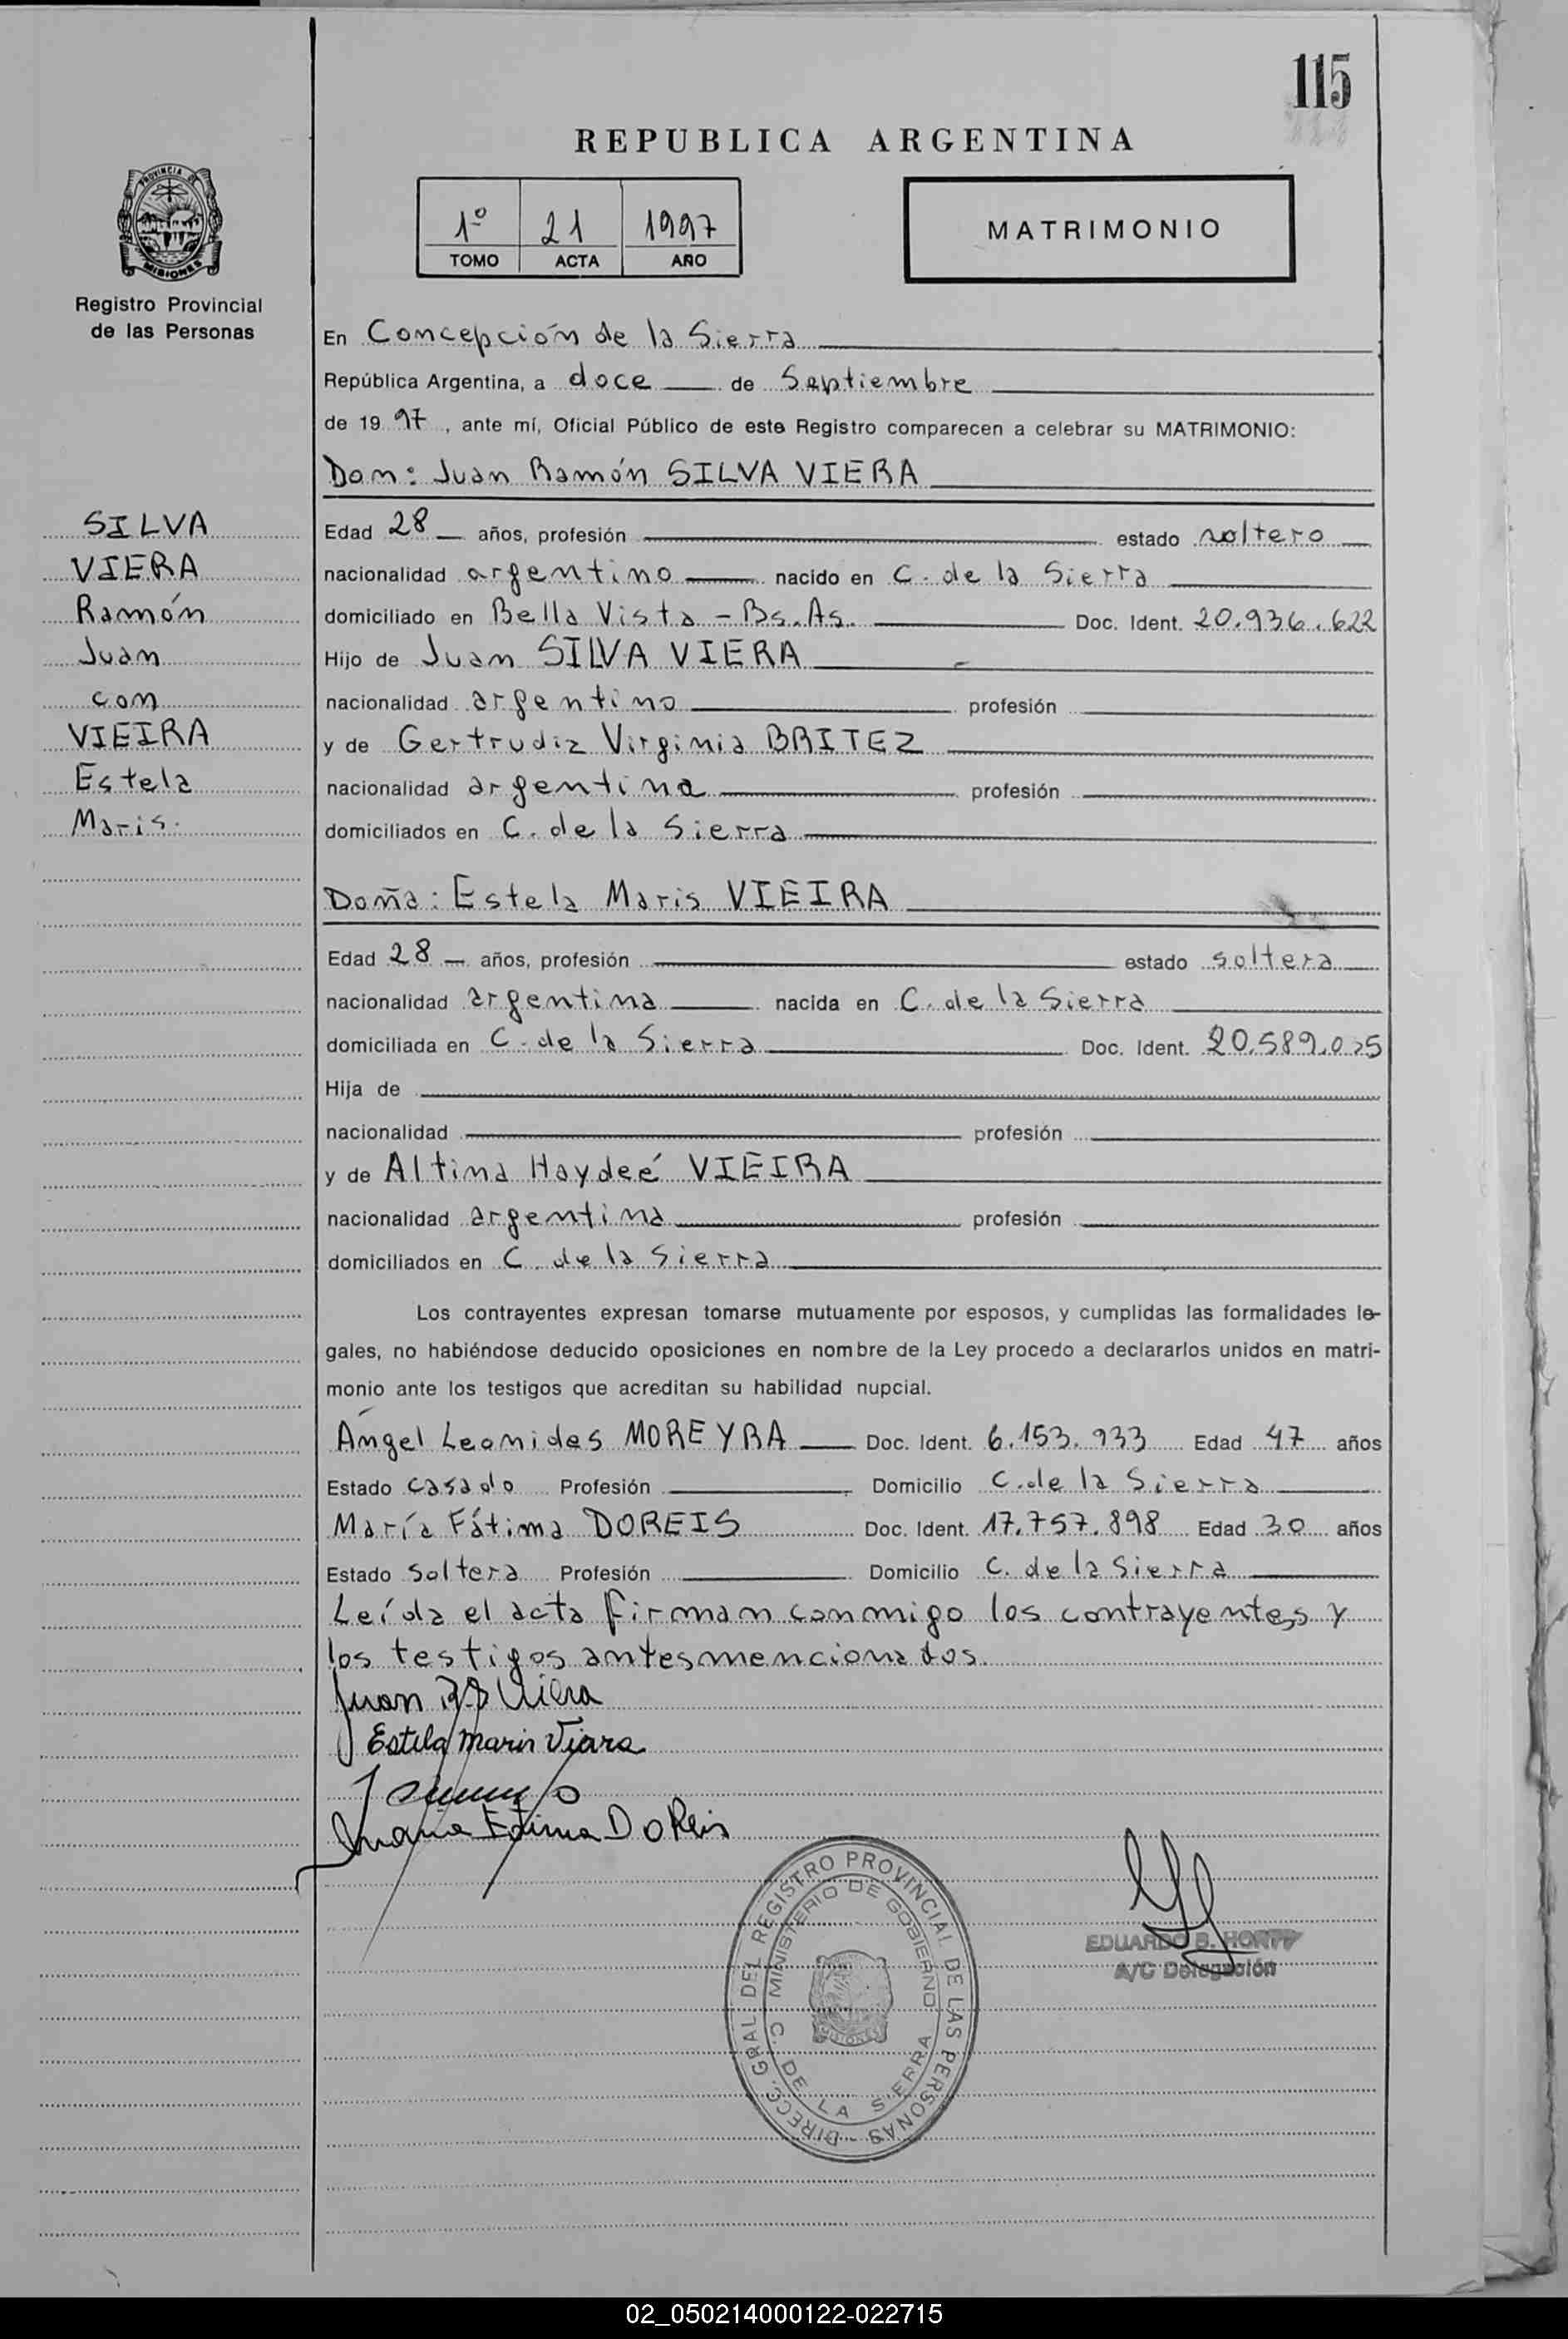 115
REPUBLICA ARGENTINA
1º 21 1997
TOMO ACTA AÑO
MATRIMONIO
PROVINCIA DE
MISIONES
Registro Provincial
de las Personas
En Concepción de la Sierra
República Argentina, a doce de Septiembre
de 19 97, ante mí, Oficial Público de este Registro comparecen a celebrar su MATRIMONIO:
Don: Juan Ramón SILVA VIERA
SILVA
VIERA
Ramón
Juan
con
VIEIRA
Estela
Maris.
Edad 28 años, profesión estado soltero
nacionalidad argentino nacido en C. de la Sierra
domiciliado en Bella Vista - Bs. As. Doc. Ident. 20.936.622
Hijo de Juan SILVA VIERA
nacionalidad argentino profesión
y de Gertrudiz Virginia BRITEZ
nacionalidad argentina profesión
domiciliados en C. de la Sierra
Doña: Estela Maris VIEIRA
Edad 28 años, profesión estado soltera
nacionalidad argentina nacida en C. de la Sierra
domiciliada en C. de la Sierra Doc. Ident.
Hija de
nacionalidad profesión
y de Altina Haydeé VIEIRA
nacionalidad argentina profesión
domiciliados en C. de la Sierra
Los contrayentes expresan tomarse mutuamente por esposos, y cumplidas las formalidades le-
gales, no habiéndose deducido oposiciones en nombre de la Ley procedo a declararlos unidos en matri-
monio ante los testigos que acreditan su habilidad nupcial.
Ángel Leonides MOREYRA Doc. Ident. 6.153.933 Edad 47 años
Estado casado Profesión Domicilio C. de la Sierra
María Fátima DOREIS Doc. Ident. 17.757.898 Edad 30 años
Estado soltera Profesión Domicilio C. de la Sierra
Leída el acta firman conmigo los contrayentes y
los testigos antesmencionados.
Juan Viera
Estela Maris Viara
Fatima Do Reis
DIRECC. GRAL. DEL REGISTRO PROVINCIAL DE LAS PERSONAS
MINISTERIO DE GOBIERNO
C. DE LA SIERRA
MISIONES
EDUARDO B.
A/C Delegación
02_050214000122-022715